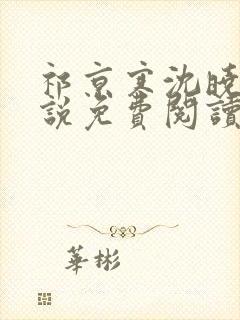 祁京寒沈晚
說免費閱讀
華彬